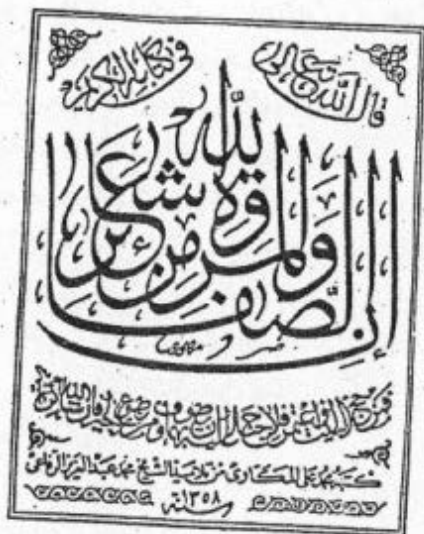 قال الله تعالى
في كتابه الكريم
إن الصفا والمروة من شعائر الله
فمن حج البيت او اعتمر فلا جناح عليه ان يطوف بهما ومن تطوع خيرا فان الله
كتبه محمد على المكاوى من تلاميذ الشيخ محمد عبد العزيز الرفاعى
سنة ١٣٥٨